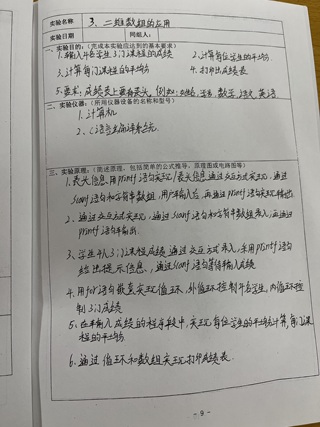 实验名称 3. 二维数组的应用
实验日期 同组人:
一. 实验目的:(完成本实验应达到的基本要求)
1. 输入4名学生3门课程的成绩 2. 计算每位学生的平均分
3. 计算每门课程的平均分 4. 打印出成绩表
5. 要求:成绩表上要有表头,例如: 学号 数学 语文 英语
二. 实验仪器:(所用仪器设备的名称和型号)
1. 计算机
2. C语言编译系统.
三. 实验原理:(简述原理、包括简单的公式推导、原理图或电路图等)
1. 表头信息用printf语句实现/表头信息通过交互方式实现,通过
scanf语句和字符串数组,用户输入后,再通过printf语句实现输出
2. 通过交互方式实现,通过scanf语句和字符串数组录入,再通过
printf语句输出.
3. 学生4人3门课程成绩通过交互方式录入,采用printf语句
给出提示信息,通过scanf语句等待输入成绩
4. 用for语句嵌套实现循环,外循环控制4名学生,内循环控
制3门成绩
5. 在输入成绩的程序段中,实现每位学生的平均分计算,每门课
程的平均分
6. 通过循环和数组实现打印成绩表.
- 9 -